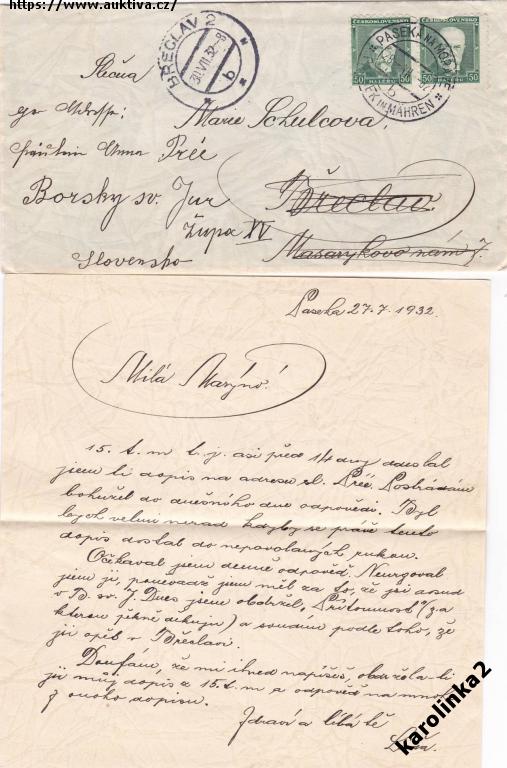 https://www.auktiva.cz/
BŘECLAV 2
30.VII.32
b
ČESKOSLOVENSKO
ČESKOSLOVENSKO
50 HALÉŘŮ 50
50
PASEKA NA MORAVĚ
IN MÄHREN
b
Slečna
Marie Schulcova,
per Adresse:
Fräulein Anna Préc
Břeclav.
Borsky sv. Jur
Župa XV
Masarykovo nám 7.
Slovensko
Paseka 27.7.1932.
Milá Maryno!
15. t.m t.j. asi před 14 dny odeslal
jsem ti dopis na adresu sl. Préc. Postrádám
bohužel do dnešního dne odpovědi. Byl
bych velmi nerad kdyby se právě tento
dopis dostal do nepovolaných rukou.
Očekával jsem denně odpověď. Neurgoval
jsem ji, poněvadž jsem měl za to, že jsi dosud
v B. sv. J. Dnes jsem obdržel "Přítomnost" (za
kterou pěkně děkuji) a soudím podle toho, že
jsi opět v Břeclavi.
Doufám, že mi ihned napíšeš, obdržela-li
jsi můj dopis z 15. t. m a odpověď na
z onoho dopisu.
Zdraví a líbá tě
karolinka2